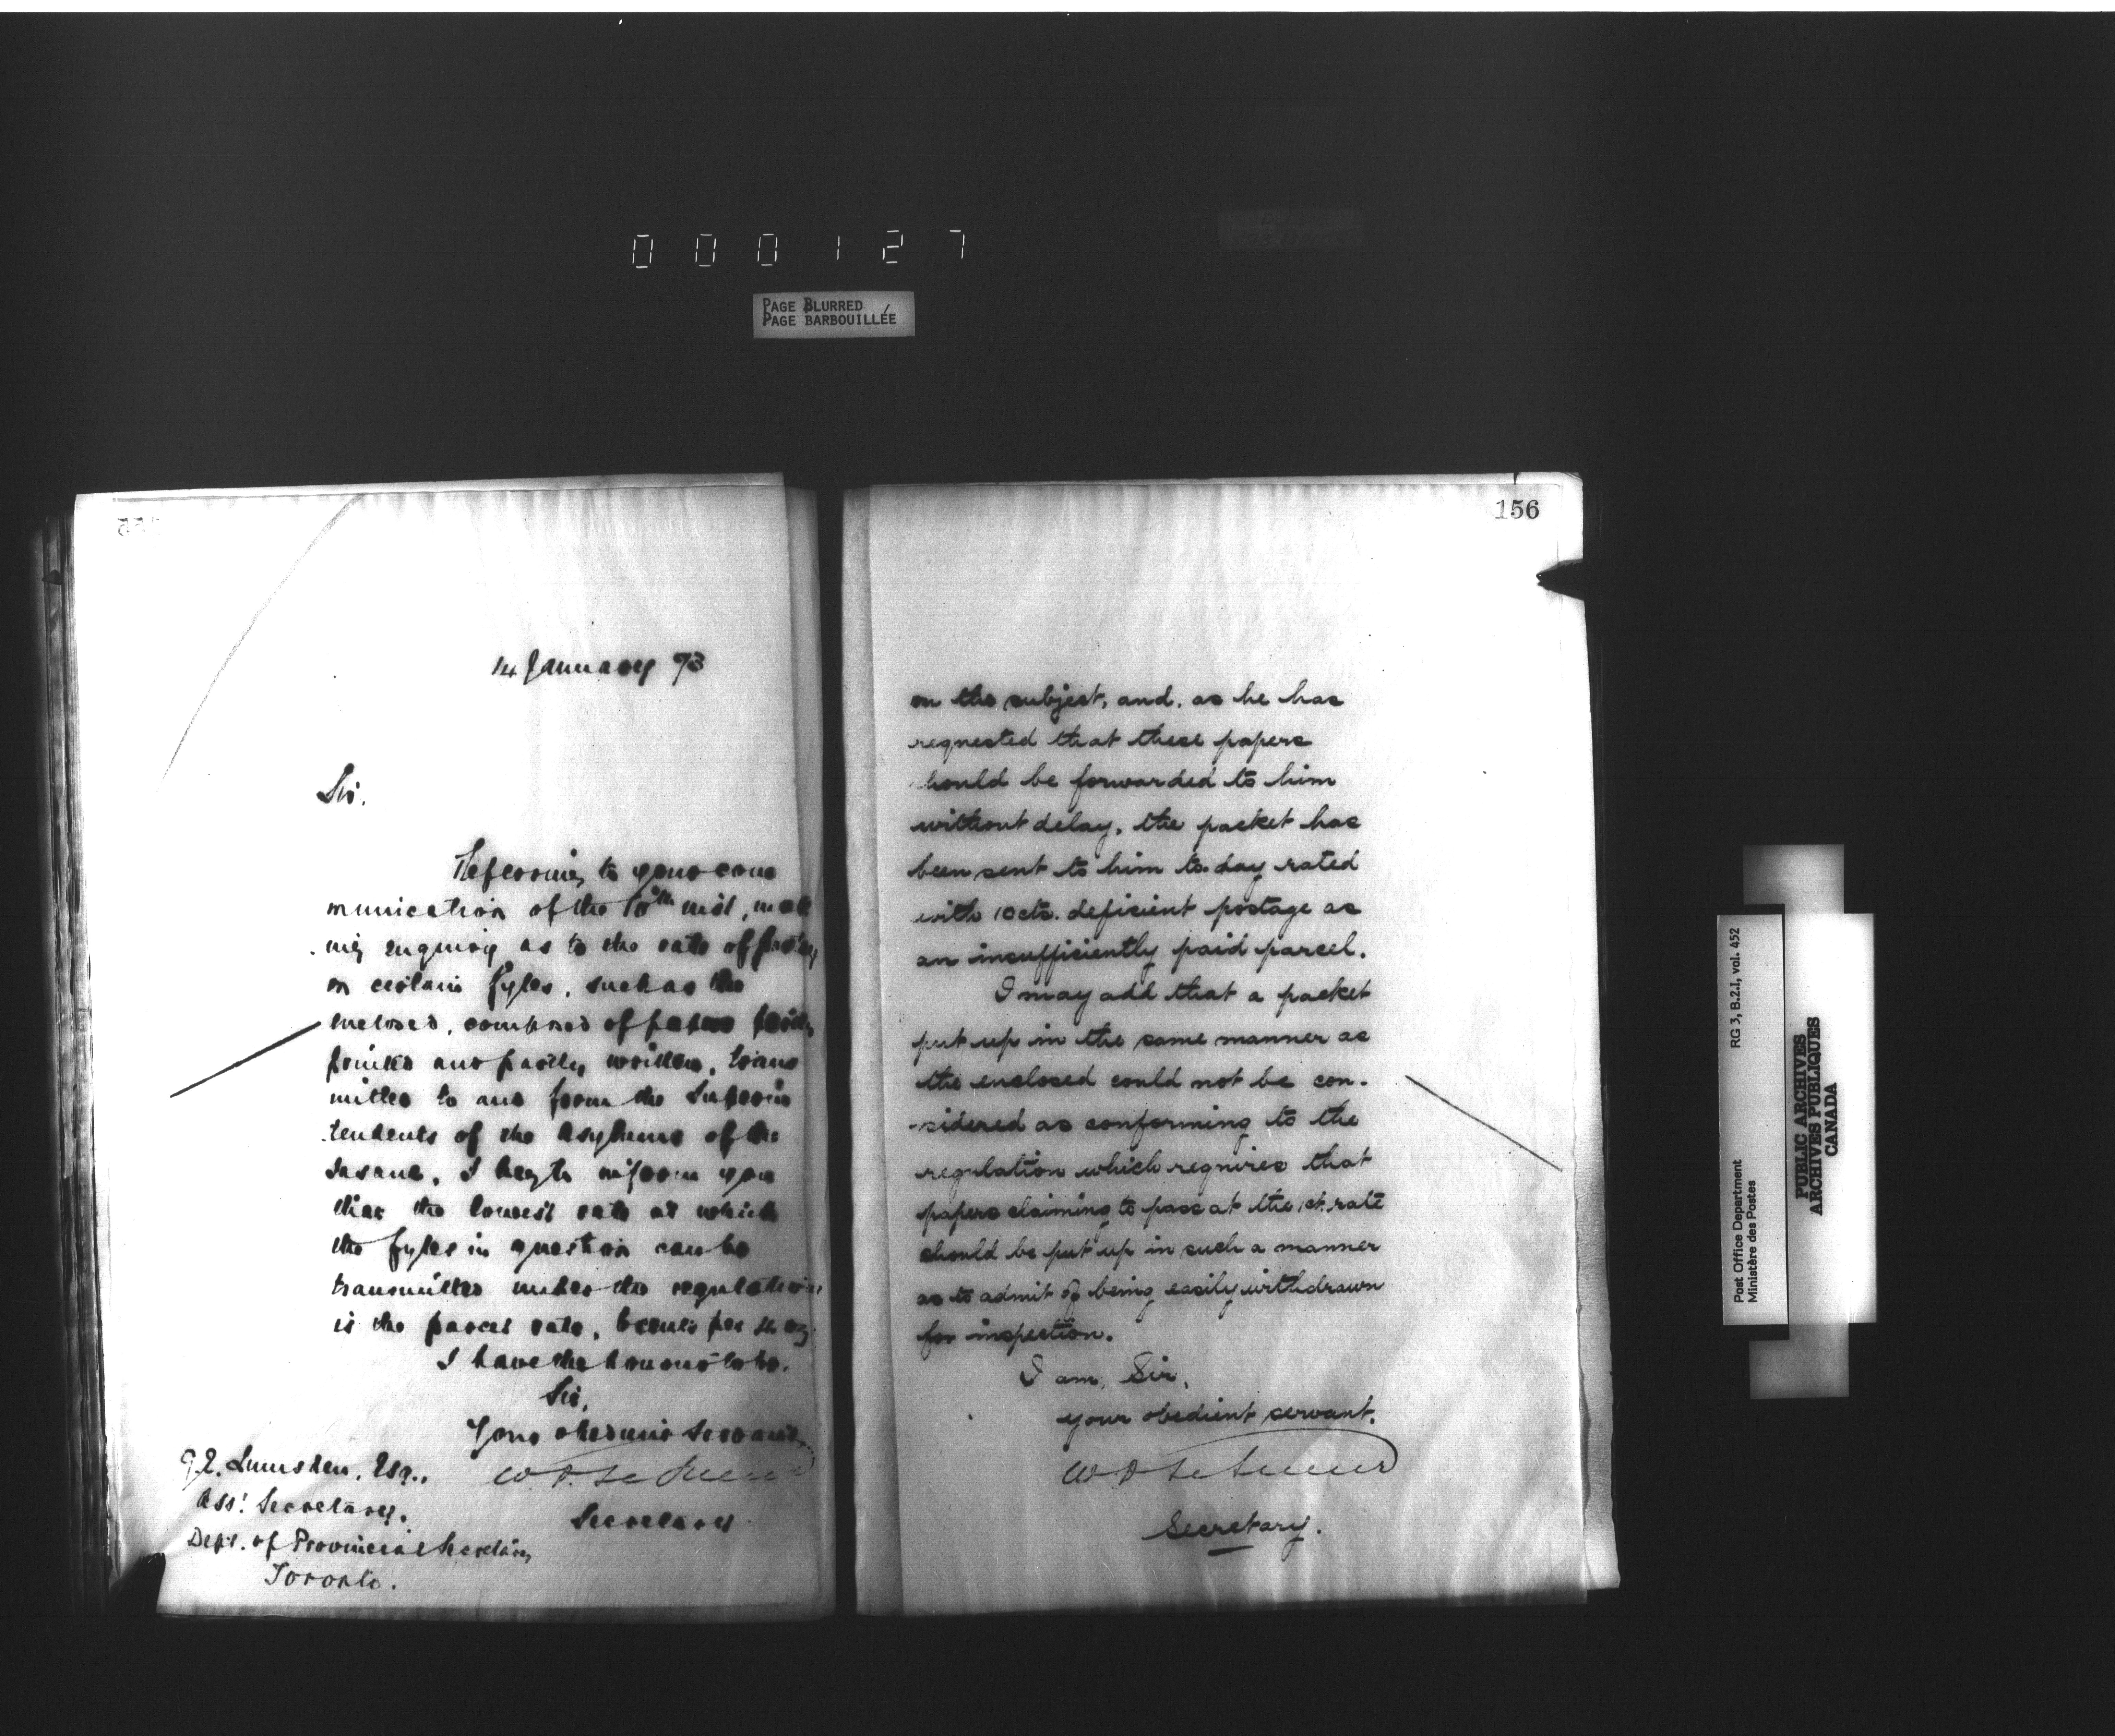 000127
PAGE BLURRED
PAGE BARBOUILLÉE
14 January 93
Sir.
Referring to your com
munication of the 10th inst, mak
ing enquiry as to the rate of postage
on certain fyles, such as the
enclosed, composed of papers partly
printed and partly written, trans
mitted to and from the Superin
tendents of the Asylums of the
Insane, I beg to inform you
that the lowest rate at which
the fyles in question can be
transmitted under the regulations
is the parcel rate, 6 cents per 4 oz.
I have the honour to be.
Sir,
Your obedient Servant
W D Le Sueur
Secretary
G.E. Lumsden, Esq.,
Asst. Secretary.
Dept. of Provincial Secretary
Toronto.
156
on the subject, and, as he has
requested that these papers
should be forwarded to him
without delay, the packet has
been sent to him to-day rated
with 10cts. deficient postage as
an insufficiently paid parcel.
I may add that a packet
put up in the same manner as
the enclosed could not be con-
sidered as conforming to the
regulation which requires that
papers claiming to pass at the 1ct. rate
should be put up in such a manner
as to admit of being easily withdrawn
for inspection.
I am, Sir,
your obedient servant.
W D Le Sueur
Secretary.
RG 3, B.2.1, vol. 452
Post Office Department
Ministère des Postes
PUBLIC ARCHIVES
ARCHIVES PUBLIQUES
CANADA